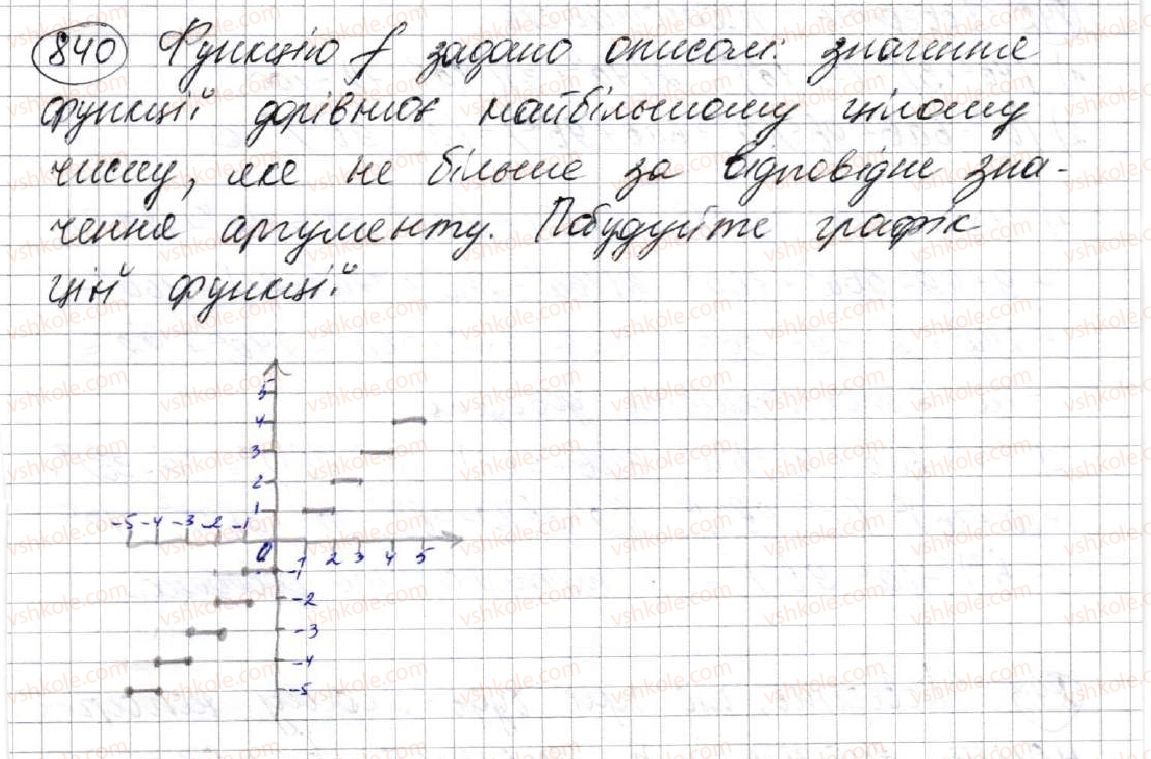 840 Функцію f задано описом: значення
функції дорівнює найбільшому цілому
числу, яке не більше за відповідне зна-
чення аргументу. Побудуйте графік
цій функції
5
4
3
2
1
-5 -4 -3 -2 -1
0 1 2 3 4 5
-1
-2
-3
-4
-5
vshkole.com